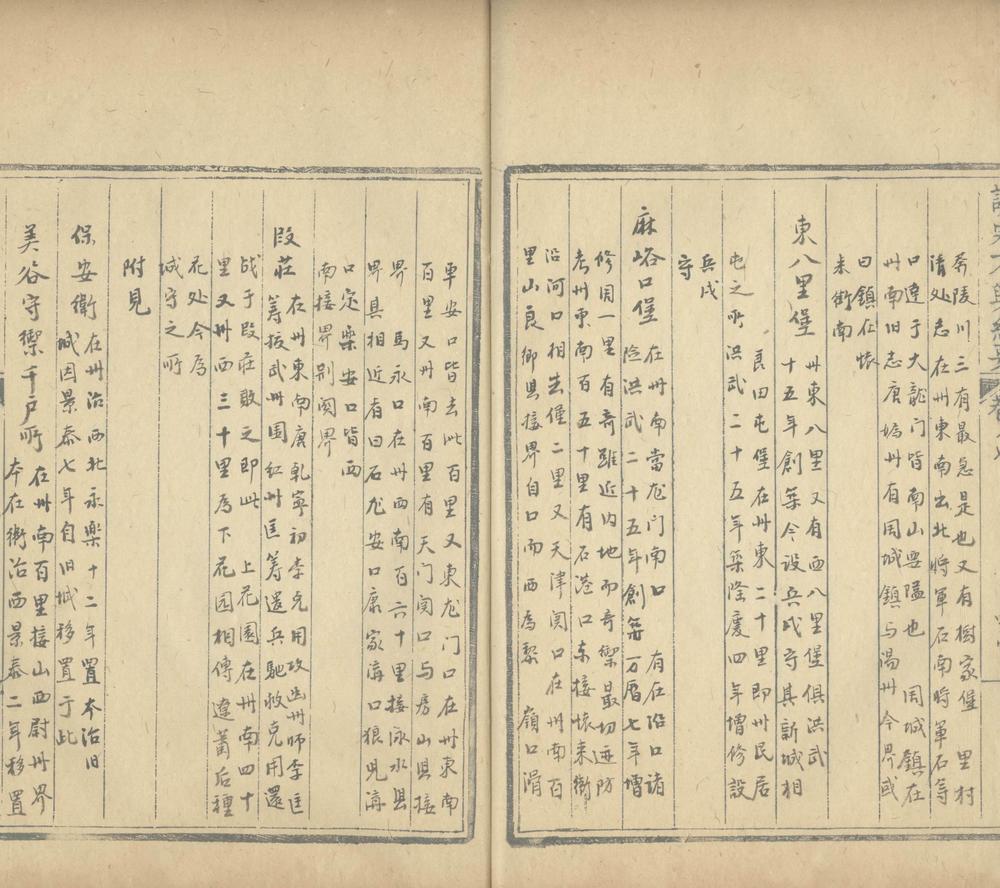 斋陵川三有最急是也又有樹家堡　里村
清处志在州東南出北將軍石南時軍石等
口達于大龍门皆南山要隘也　周城鎮在
州南旧志唐媯州有周城鎮与湯州今界或
曰鎮在怀
来衛南
東八里堡　州東八里又有西八里堡俱洪武
十五年創築今设兵戍守其新城相
良田屯堡在州東二十里即州民居
屯之所洪武二十五年築隆慶四年增修設
兵戍
守
麻峪口堡　在州南當龙门南口　有石沿口诸
险洪武二十五年創築万曆七年增
修周一里有奇雖近内地而奇禦最切边防
考州東南百五十里有石港口东接怀来衛
沿河口相去僅二里又天津関口在州南百
里山良鄉县接界自口而西為黎　嶺口滑
車安口皆去此百里又東龙门口在州東南
百里又州南百里有天门関口与房山县接
界　馬永口在州西南百六十里接涿水县
界具相近者曰石龙安口康家溝口狼児溝
口定樂安口皆西
南接界别関界
段莊　在州東南唐乾寧初李克用攻幽州师李匡
筹拔武州围红州匡筹還兵馳救克用還
战于段莊敗之即此　上花園在州南四十
里又州西三十里為下花园相傳遼萧后種
花处今為
城守之所
附見
保安衛　在州治西北永樂十二年置本治旧
城因景泰七年自旧城移置于此
美谷守禦千户所　在州南百里接山西尉州界
本在衛治西景泰二年移置